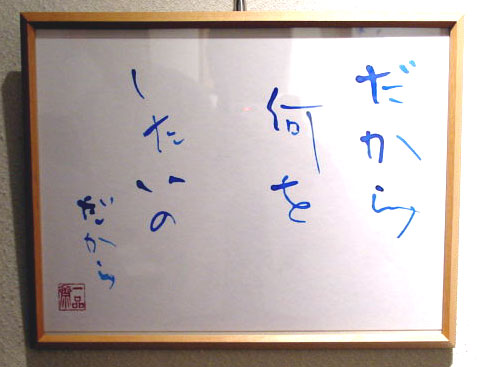 だから
何を
したいの
だから
一品